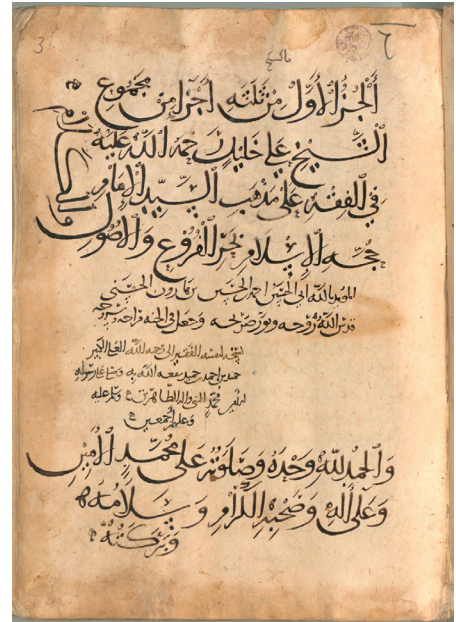 الجزء الأول من ثلثه أجزا من مجموع
الشيخ علي خليل رحمة الله عليه
في الفقه على مذهب السيد الإمام
حجه الإسلام بحر الفروع والأصول
المويد بالله ابي الحسين احمد بن الحسين بن هارون الحسني
قدس الله روحه ونور ضريحه وجعل في الجنه
لنفسه الفقير إلى رحمة الله العلي الكبير
حمد بن احمد بن حميد نفعه الله به
محمد النبي واله الطاهرين وسلم عليه
وعليهم أجمعين
والحمد لله وحده وصلوته على محمد الأمين
وعلى اله وصحبه الكرام وسلامه
وبركته